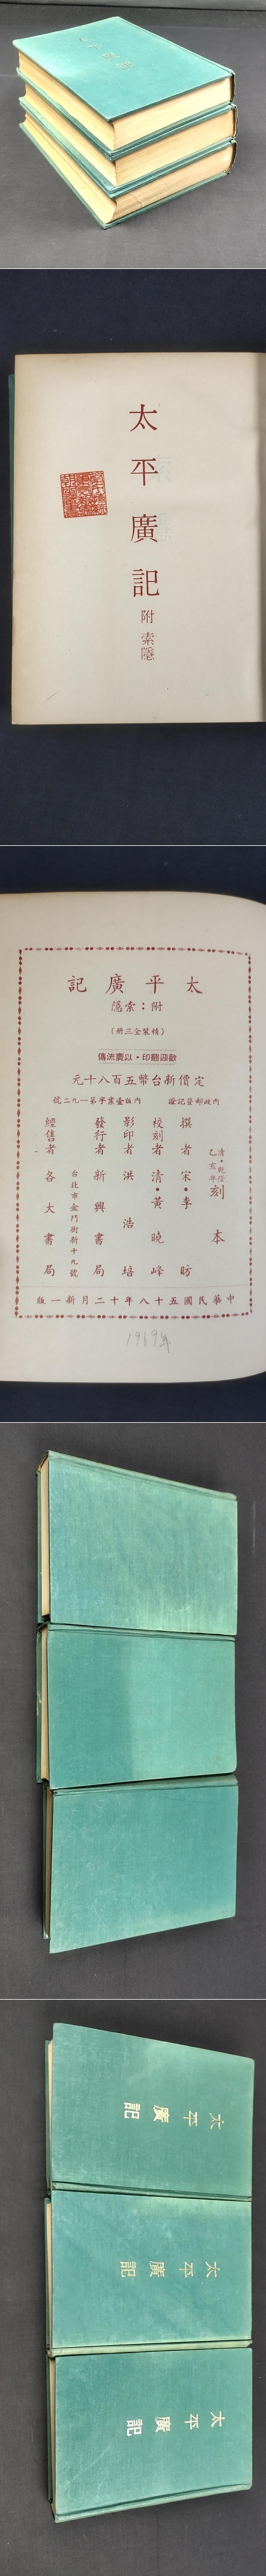 太平廣記
附 索隱
太平廣記
附：索隱
（精裝全三冊）
歡迎翻印・以廣流傳
定價新台幣五百八十元
內政部登記證 內版臺業字第一一九二號
清・乾隆乙亥年刻本
撰者 宋・李昉
校刻者 清・黃曉峰
影印者 洪浩培
發行者 新興書局
台北市金門街新十九號
經售者 各大書局
中華民國五十八年十二月新一版
1969年
太平廣記
太平廣記
太平廣記